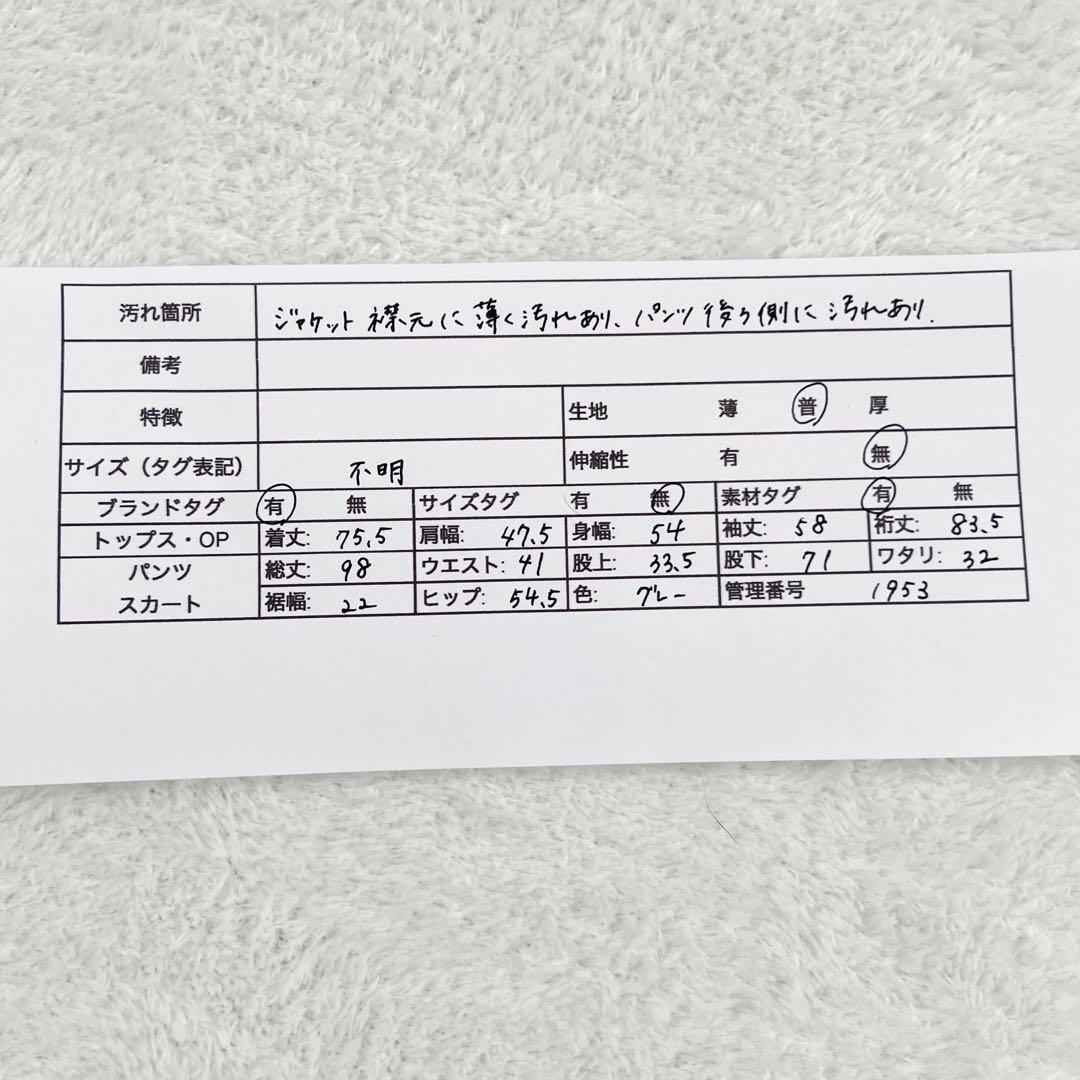 汚れ箇所 ジャケット襟元に薄く汚れあり、パンツ後ろ側に汚れあり.
備考
特徴 生地 薄 普 厚
サイズ（タグ表記） 不明 伸縮性 有 無
ブランドタグ 有 無 サイズタグ 有 無 素材タグ 有 無
トップス・OP 着丈: 75.5 肩幅: 47.5 身幅: 54 袖丈: 58 裄丈: 83.5
パンツ 総丈: 98 ウエスト: 41 股上: 33.5 股下: 71 ワタリ: 32
スカート 裾幅: 22 ヒップ: 54.5 色: グレー 管理番号 1953